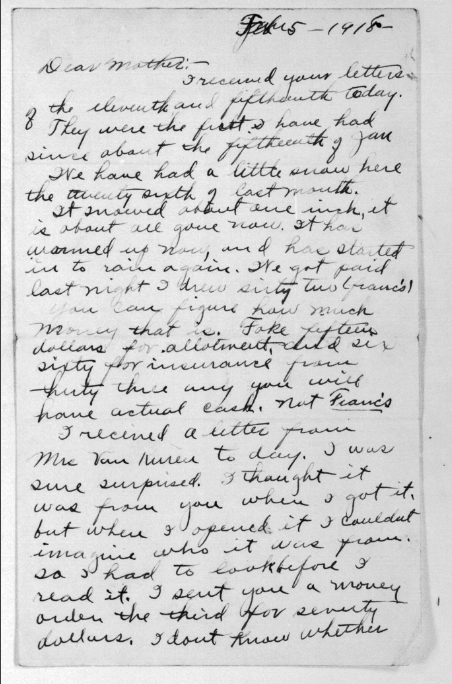 Feb 5 - 1918
Dear Mother:-
I received your letters
of the eleventh and fifthteenth today.
They were the first I have had
since about the fifthteenth of Jan
We have had a little snow here
the twenty sixth of last month.
It snowed about one inch, it
is about all gone now. It has
warmed up now, and has started
in to rain again. We got paid
last night I drew sixty two (francs)
You can figure how much
money that is. Take fifteen
dollars for allotment, and six
sixty for insurance from
thirty three any you will
have actual cash. Not Francs
I received a letter from
Mrs Van Buren to day. I was
sure surprised. I thought it
was from you when I got it.
but when I opened it I couldnt
imagine who it was from.
so I had to look before I
read it. I sent you a money
order the third for seventy
dollars. I dont know whether